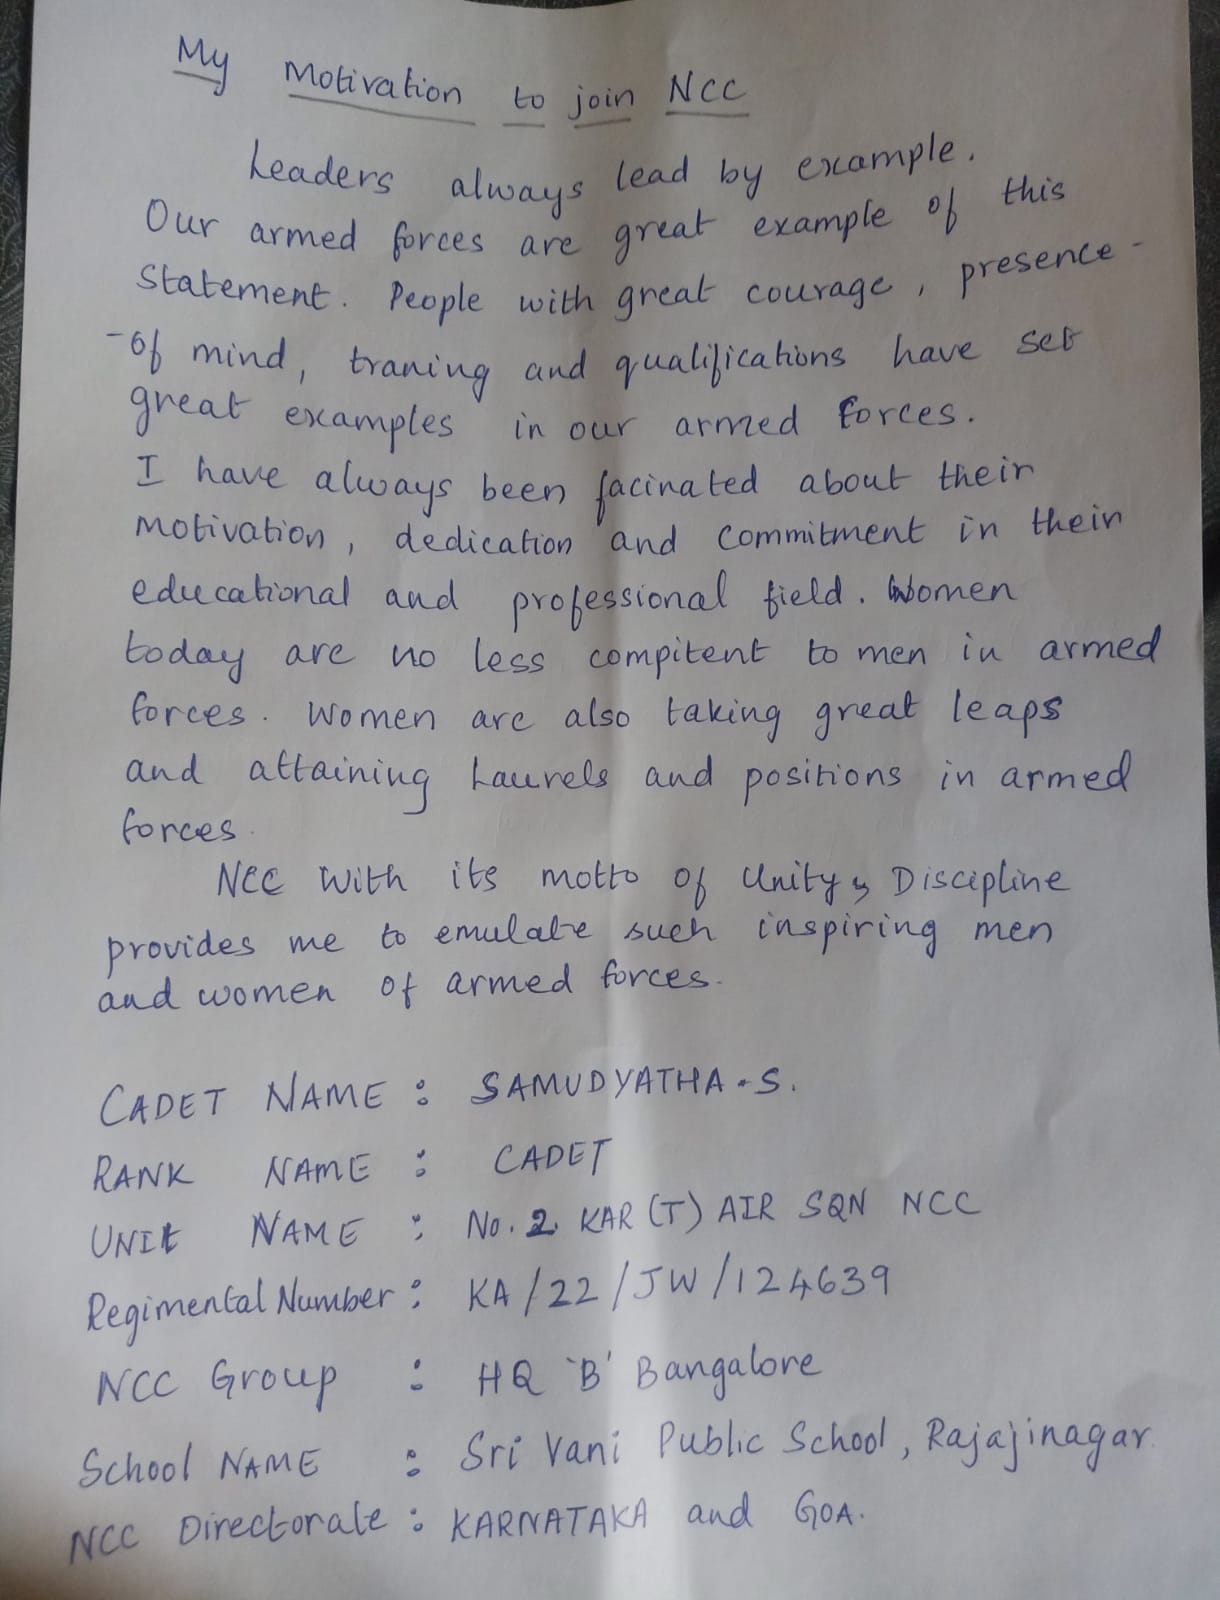 My Motivation to join NCC
Leaders always lead by example.
Our armed forces are great example of this
statement. People with great courage, presence-
-of mind, traning and qualifications have set
great examples in our armed forces.
I have always been facinated about their
motivation, dedication and commitment in their
educational and professional field. Women
today are no less compitent to men in armed
forces. Women are also taking great leaps
and attaining Laurels and positions in armed
forces.
NCC with its motto of Unity & Discipline
provides me to emulate such inspiring men
and women of armed forces.
CADET NAME : SAMUDYATHA.S.
RANK NAME : CADET
UNIt NAME : No. 2 KAR (T) AIR SQN NCC
Regimental Number : KA/22/JW/124639
NCC Group : HQ 'B' Bangalore
School NAME : Sri Vani Public School, Rajajinagar.
NCC Directorate : KARNATAKA and GOA.